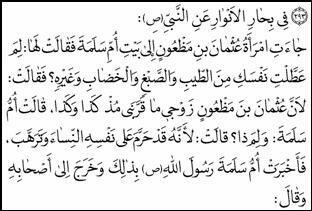 (٢٩٣) فِي بِحَارِ الْاَنْوَارِ عَنِ النَّبِيِّ (ص) :
جَاءَتِ امْرَأَةُ عُثْمَانَ بْنِ مَظْعُونٍ إِلَى بَيْتِ أُمِّ سَلَمَةَ فَقَالَتْ لَهَا: لِمَ
عَطَّلْتِ نَفْسَكِ مِنَ الطّيبِ وَالصَّبْغِ وَالْخِضَابِ وَغَيْرِهِ؟ فَقَالَتْ:
لِاَنَّ عُثْمَانَ بْنَ مَظْعُونٍ زَوْجِي مَا قَرَّبَنِي مُذْ كَذَا وَكَذَا، قَالَتْ أُمُّ
سَلَمَةَ: وَلِمَ ذَا؟ قَالَتْ: لِاَنَّهُ قَدْ حَرَّمَ عَلَى نَفْسِهِ النِّسَاءَ وَتَرَهَّبَ،
فَأَخْبَرَتْ أُمُّ سَلَمَةَ رَسُولَ اللّٰهِ (ص) بِذٰلِكَ وَخَرَجَ إِلَى أَصْحَابِهِ
وَقَالَ: